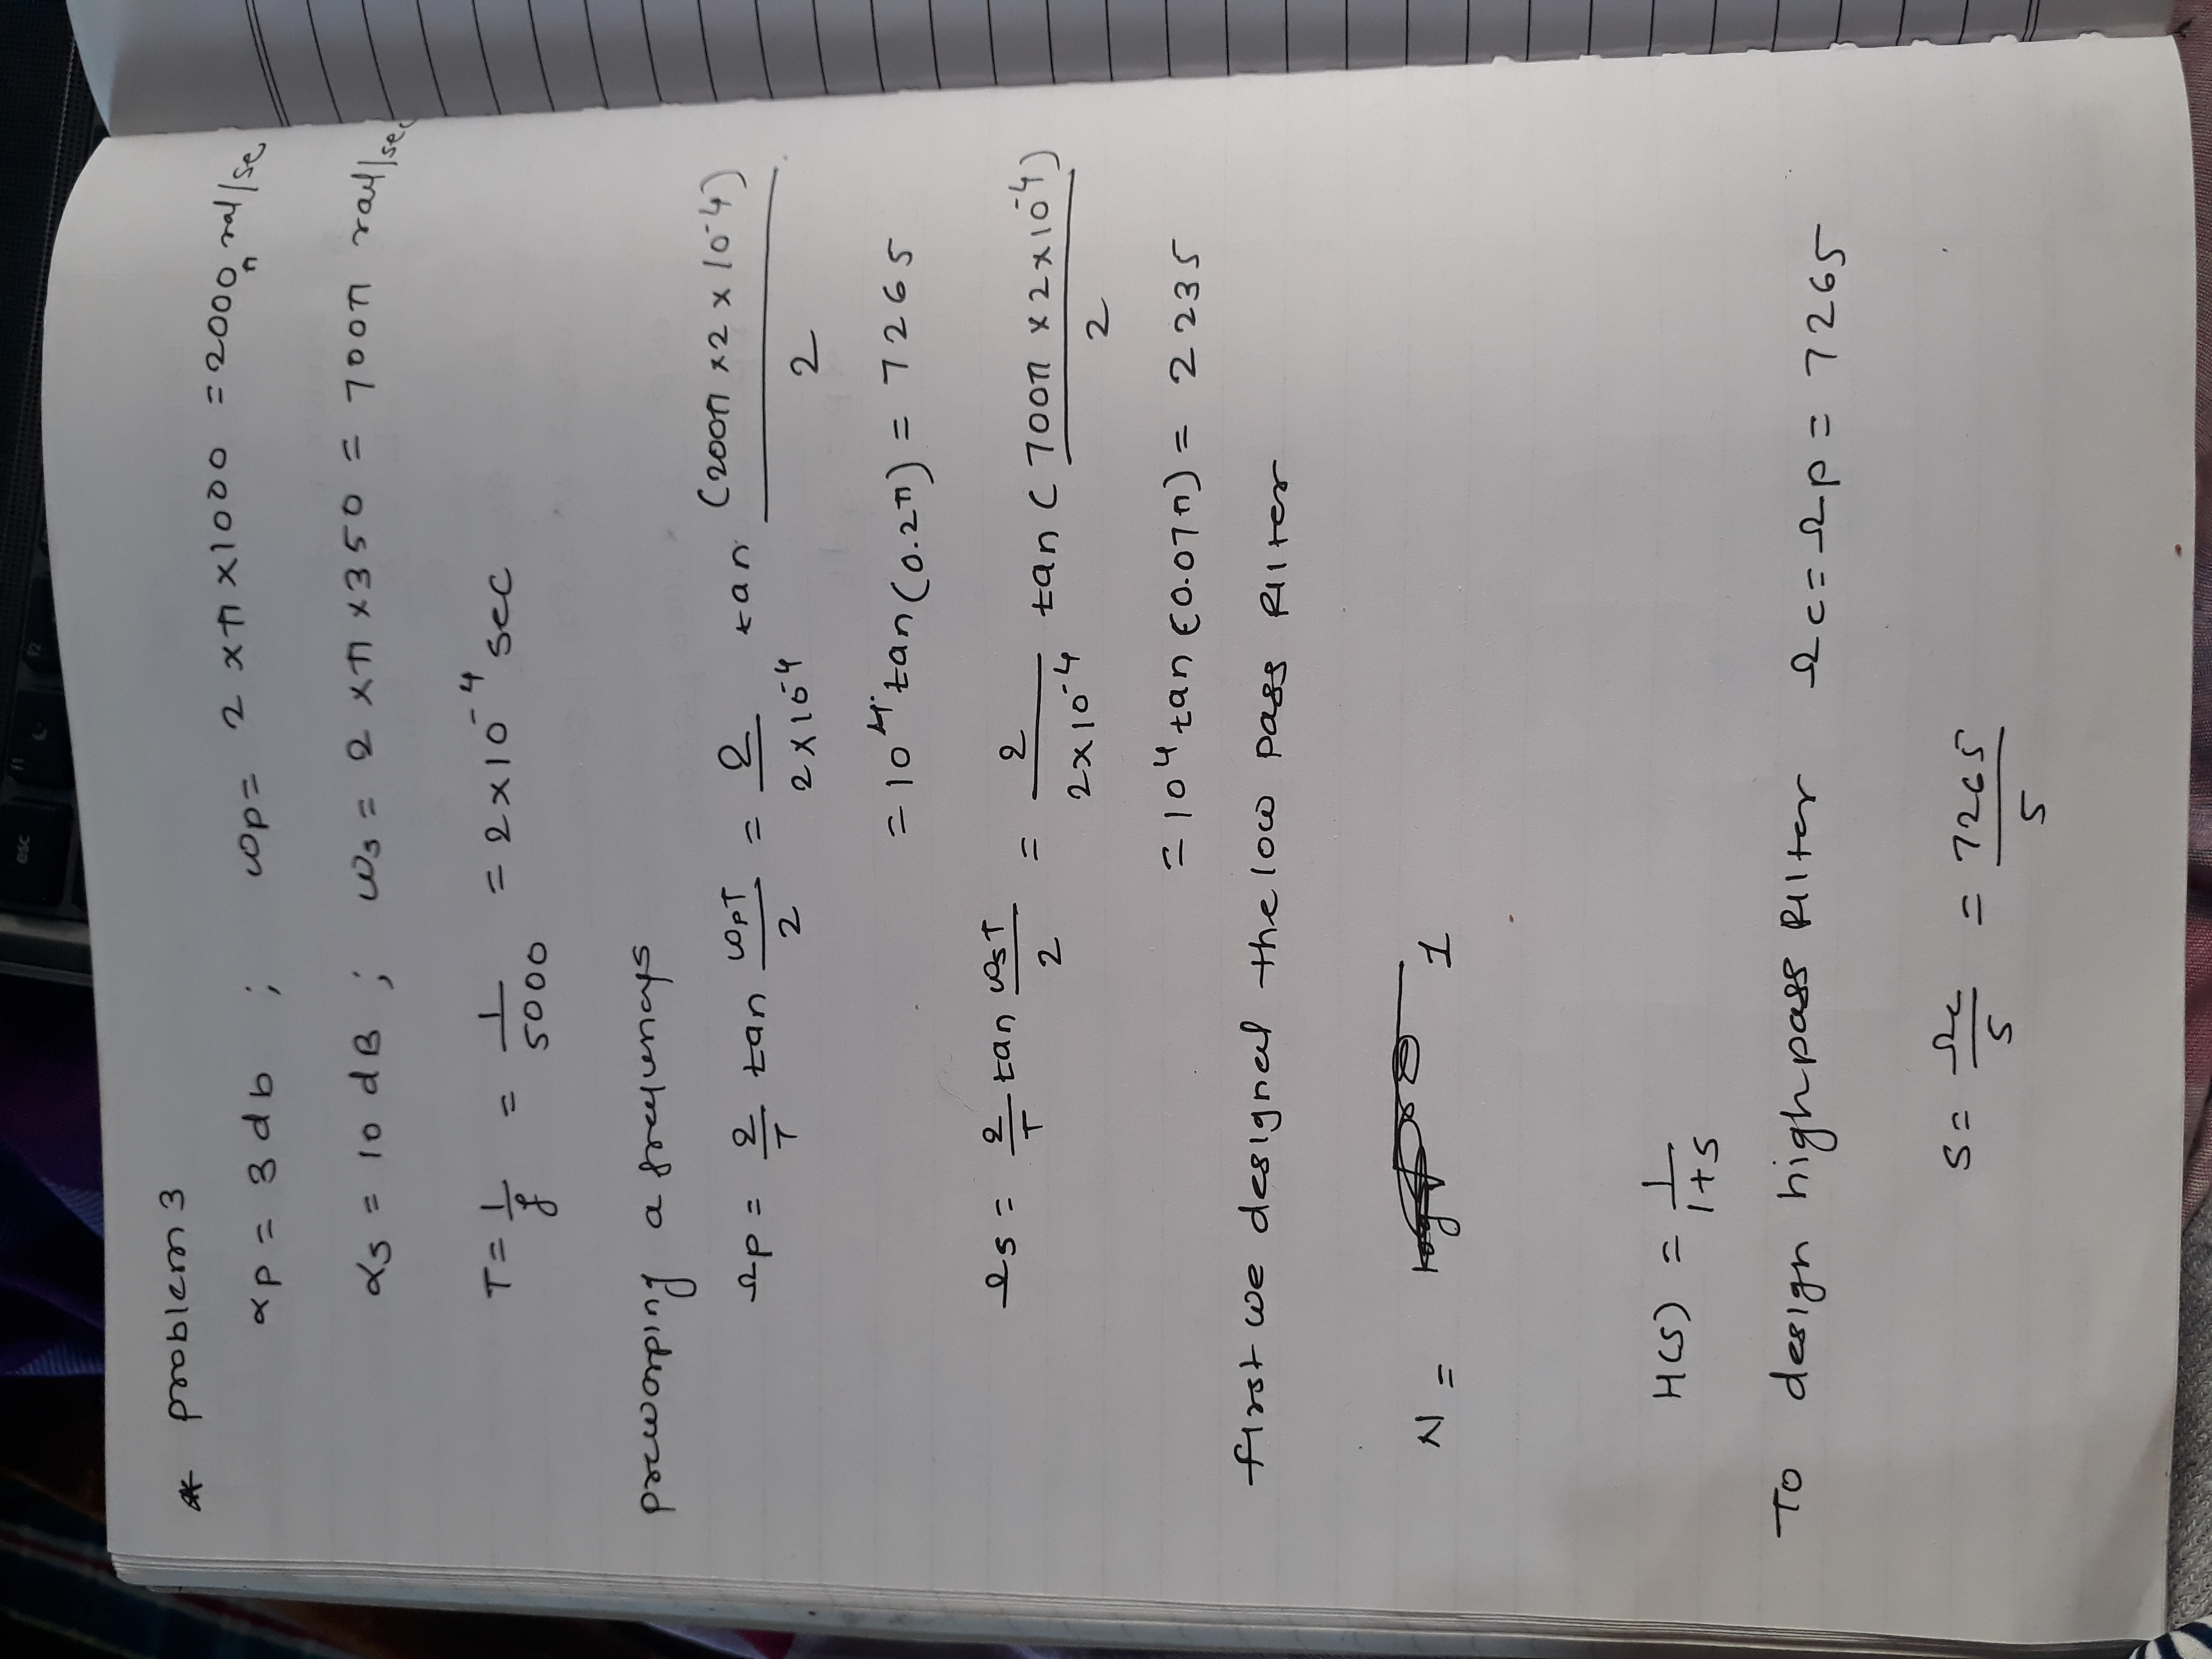 * problem 3
αp = 3 db ; ωp = 2 × π × 1000 = 2000π rad/se
αs = 10 dB ; ωs = 2 × π × 350 = 700π rad/sec
T = 1/f = 1/5000 = 2×10^-4 sec
preworping a frequencys
Ωp = 2/T tan ωpT/2 = 2/(2×10^-4) tan (200π × 2 × 10^-4)/2
= 10^4 tan (0.2π) = 7265
Ωs = 2/T tan ωsT/2 = 2/(2×10^-4) tan (700π × 2×10^-4)/2
= 10^4 tan (0.07π) = 2235
first we designed the low pass filter
N = 1
H(s) = 1/(1+s)
To design high pass filter Ωc = Ωp = 7265
S = Ωc/s = 7265/s